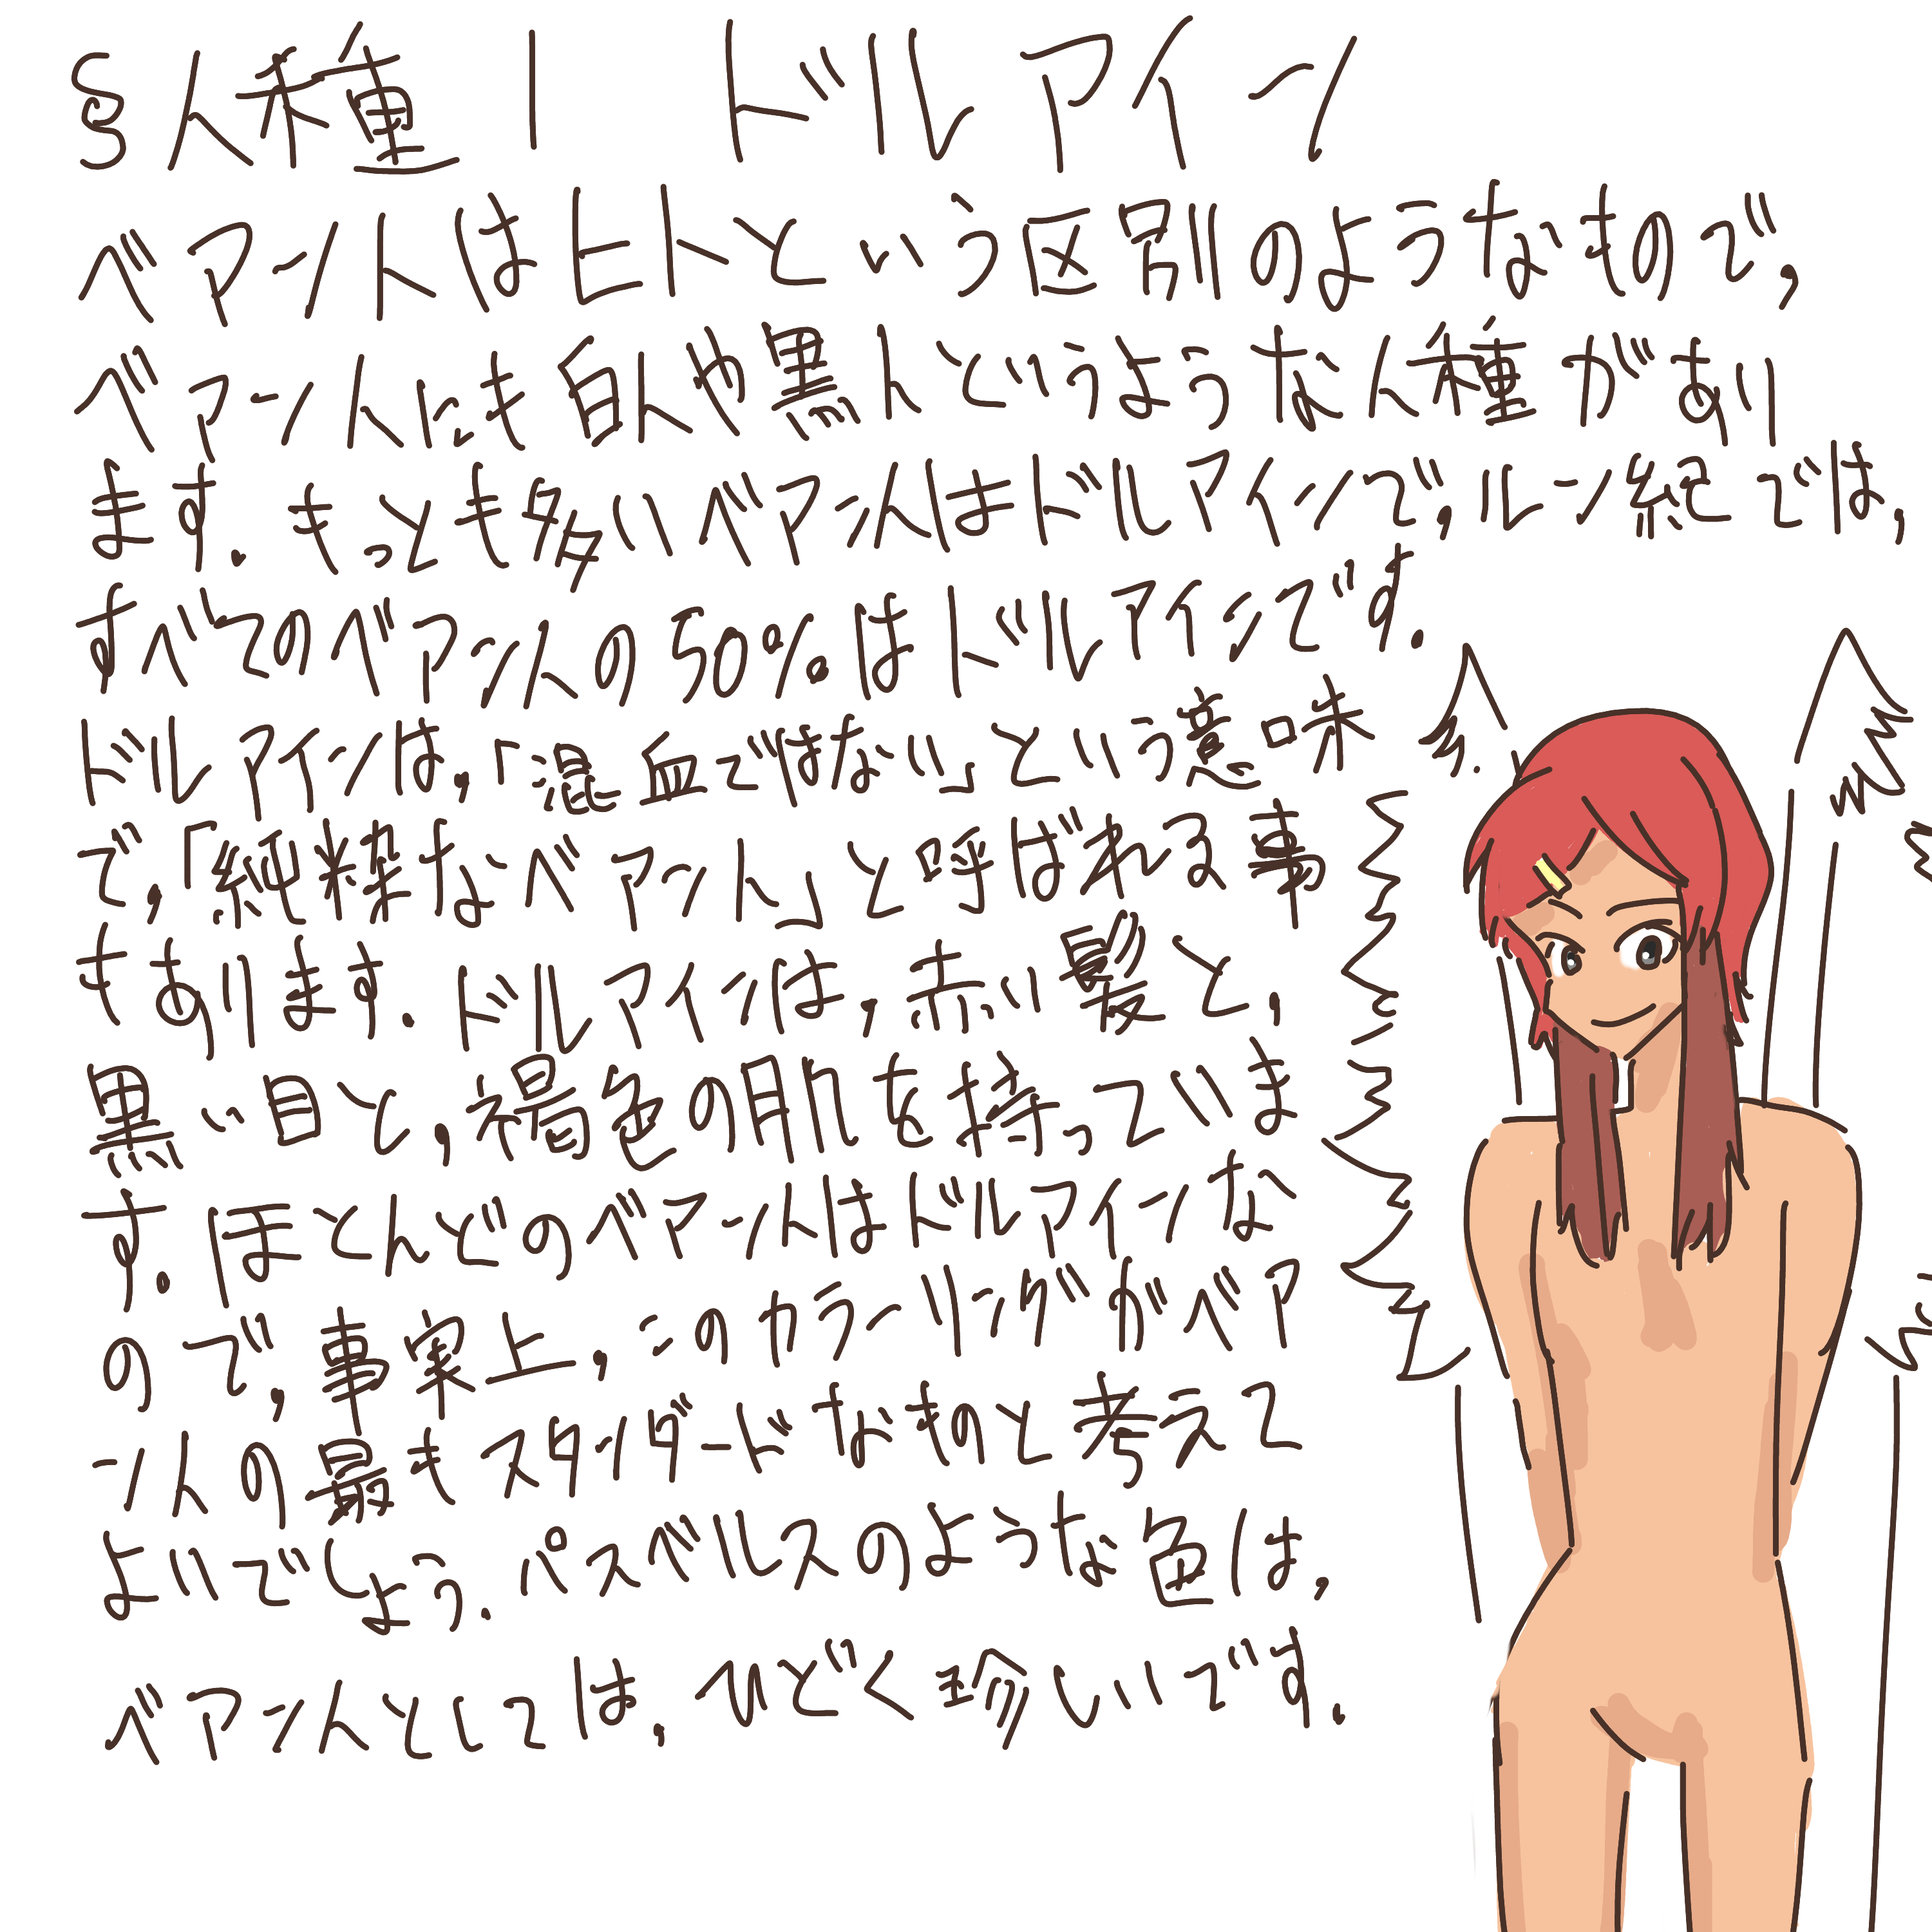 §人種1 ドルアイン
ベアントはヒトという区別のようなもので,
ベアン人にも白人や黒人というような人種があり
ます. もっとも多いベアン人はドルアインで,ルーン紀では,
すべてのベアン人の50%はドルアインです.
ドルアインは,「混血ではない」という意味
で,「純粋なベアン人」と呼ばれる事
もあります. ドルアインは,赤い髪と,
黒い目と,褐色の肌を持っていま
す. ほとんどのベアン人はドルアインな
ので,事実上,このカラーリングがベア
ン人の最もスタンダードなものと考えて
よいでしょう. パスベルスのような色は,
ベアン人としては,ひどく珍しいです.